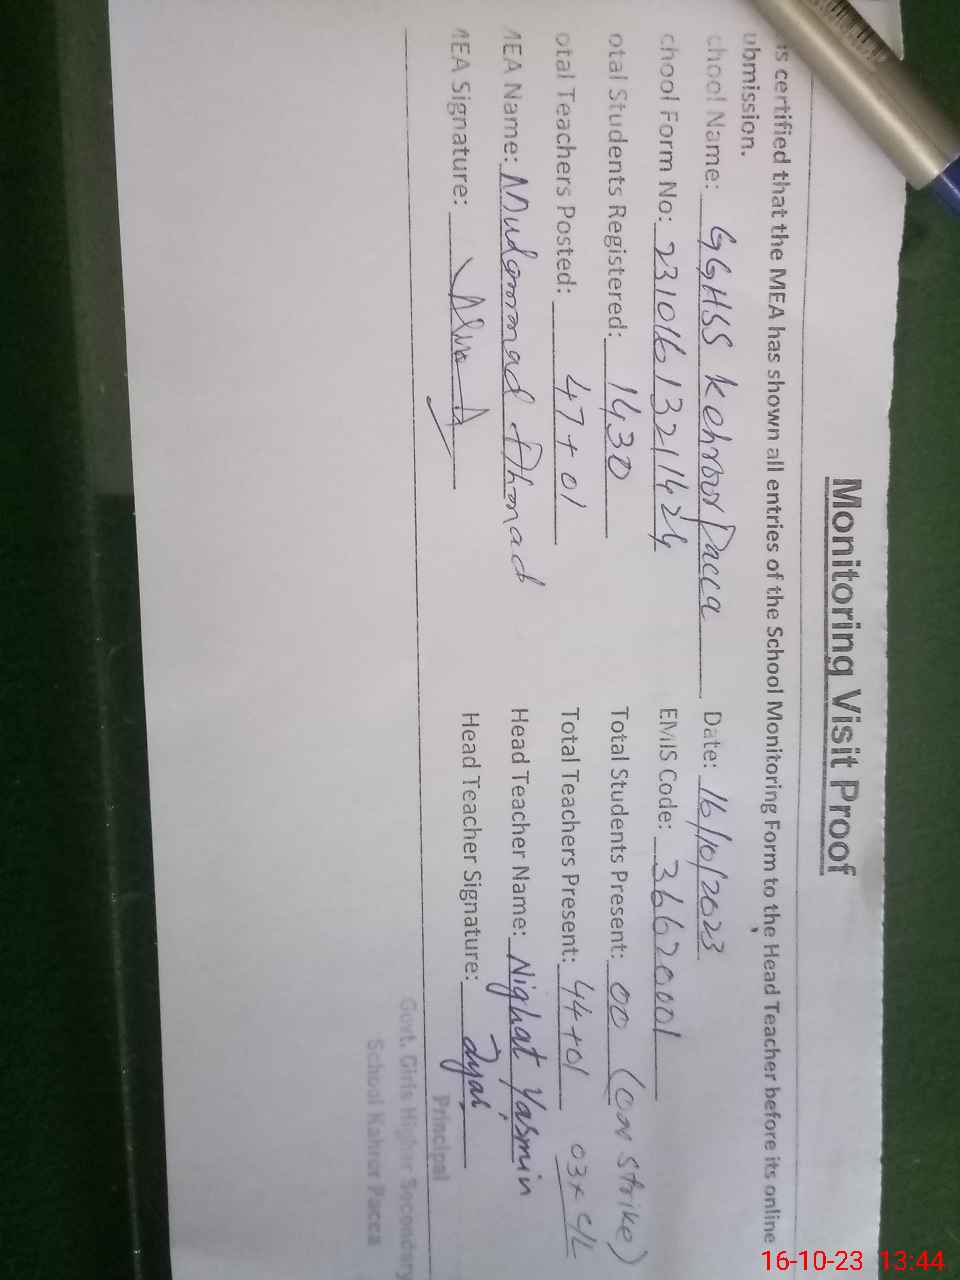 Monitoring Visit Proof
is certified that the MEA has shown all entries of the School Monitoring Form to the Head Teacher before its online
ubmission.
chool Name: GGHSS Kehror Pacca Date: 16/10/2023
chool Form No: 23101613211424 EMIS Code: 36620001
otal Students Registered: 1430 Total Students Present: 00 (on strike)
otal Teachers Posted: 47+01 Total Teachers Present: 44+01 03x C/L
MEA Name: Ahmad Head Teacher Name: Nighat Yasmin
MEA Signature: Head Teacher Signature:
Principal
Govt. Girls Higher Secondary
School Kahror Pacca
16-10-23 13:44